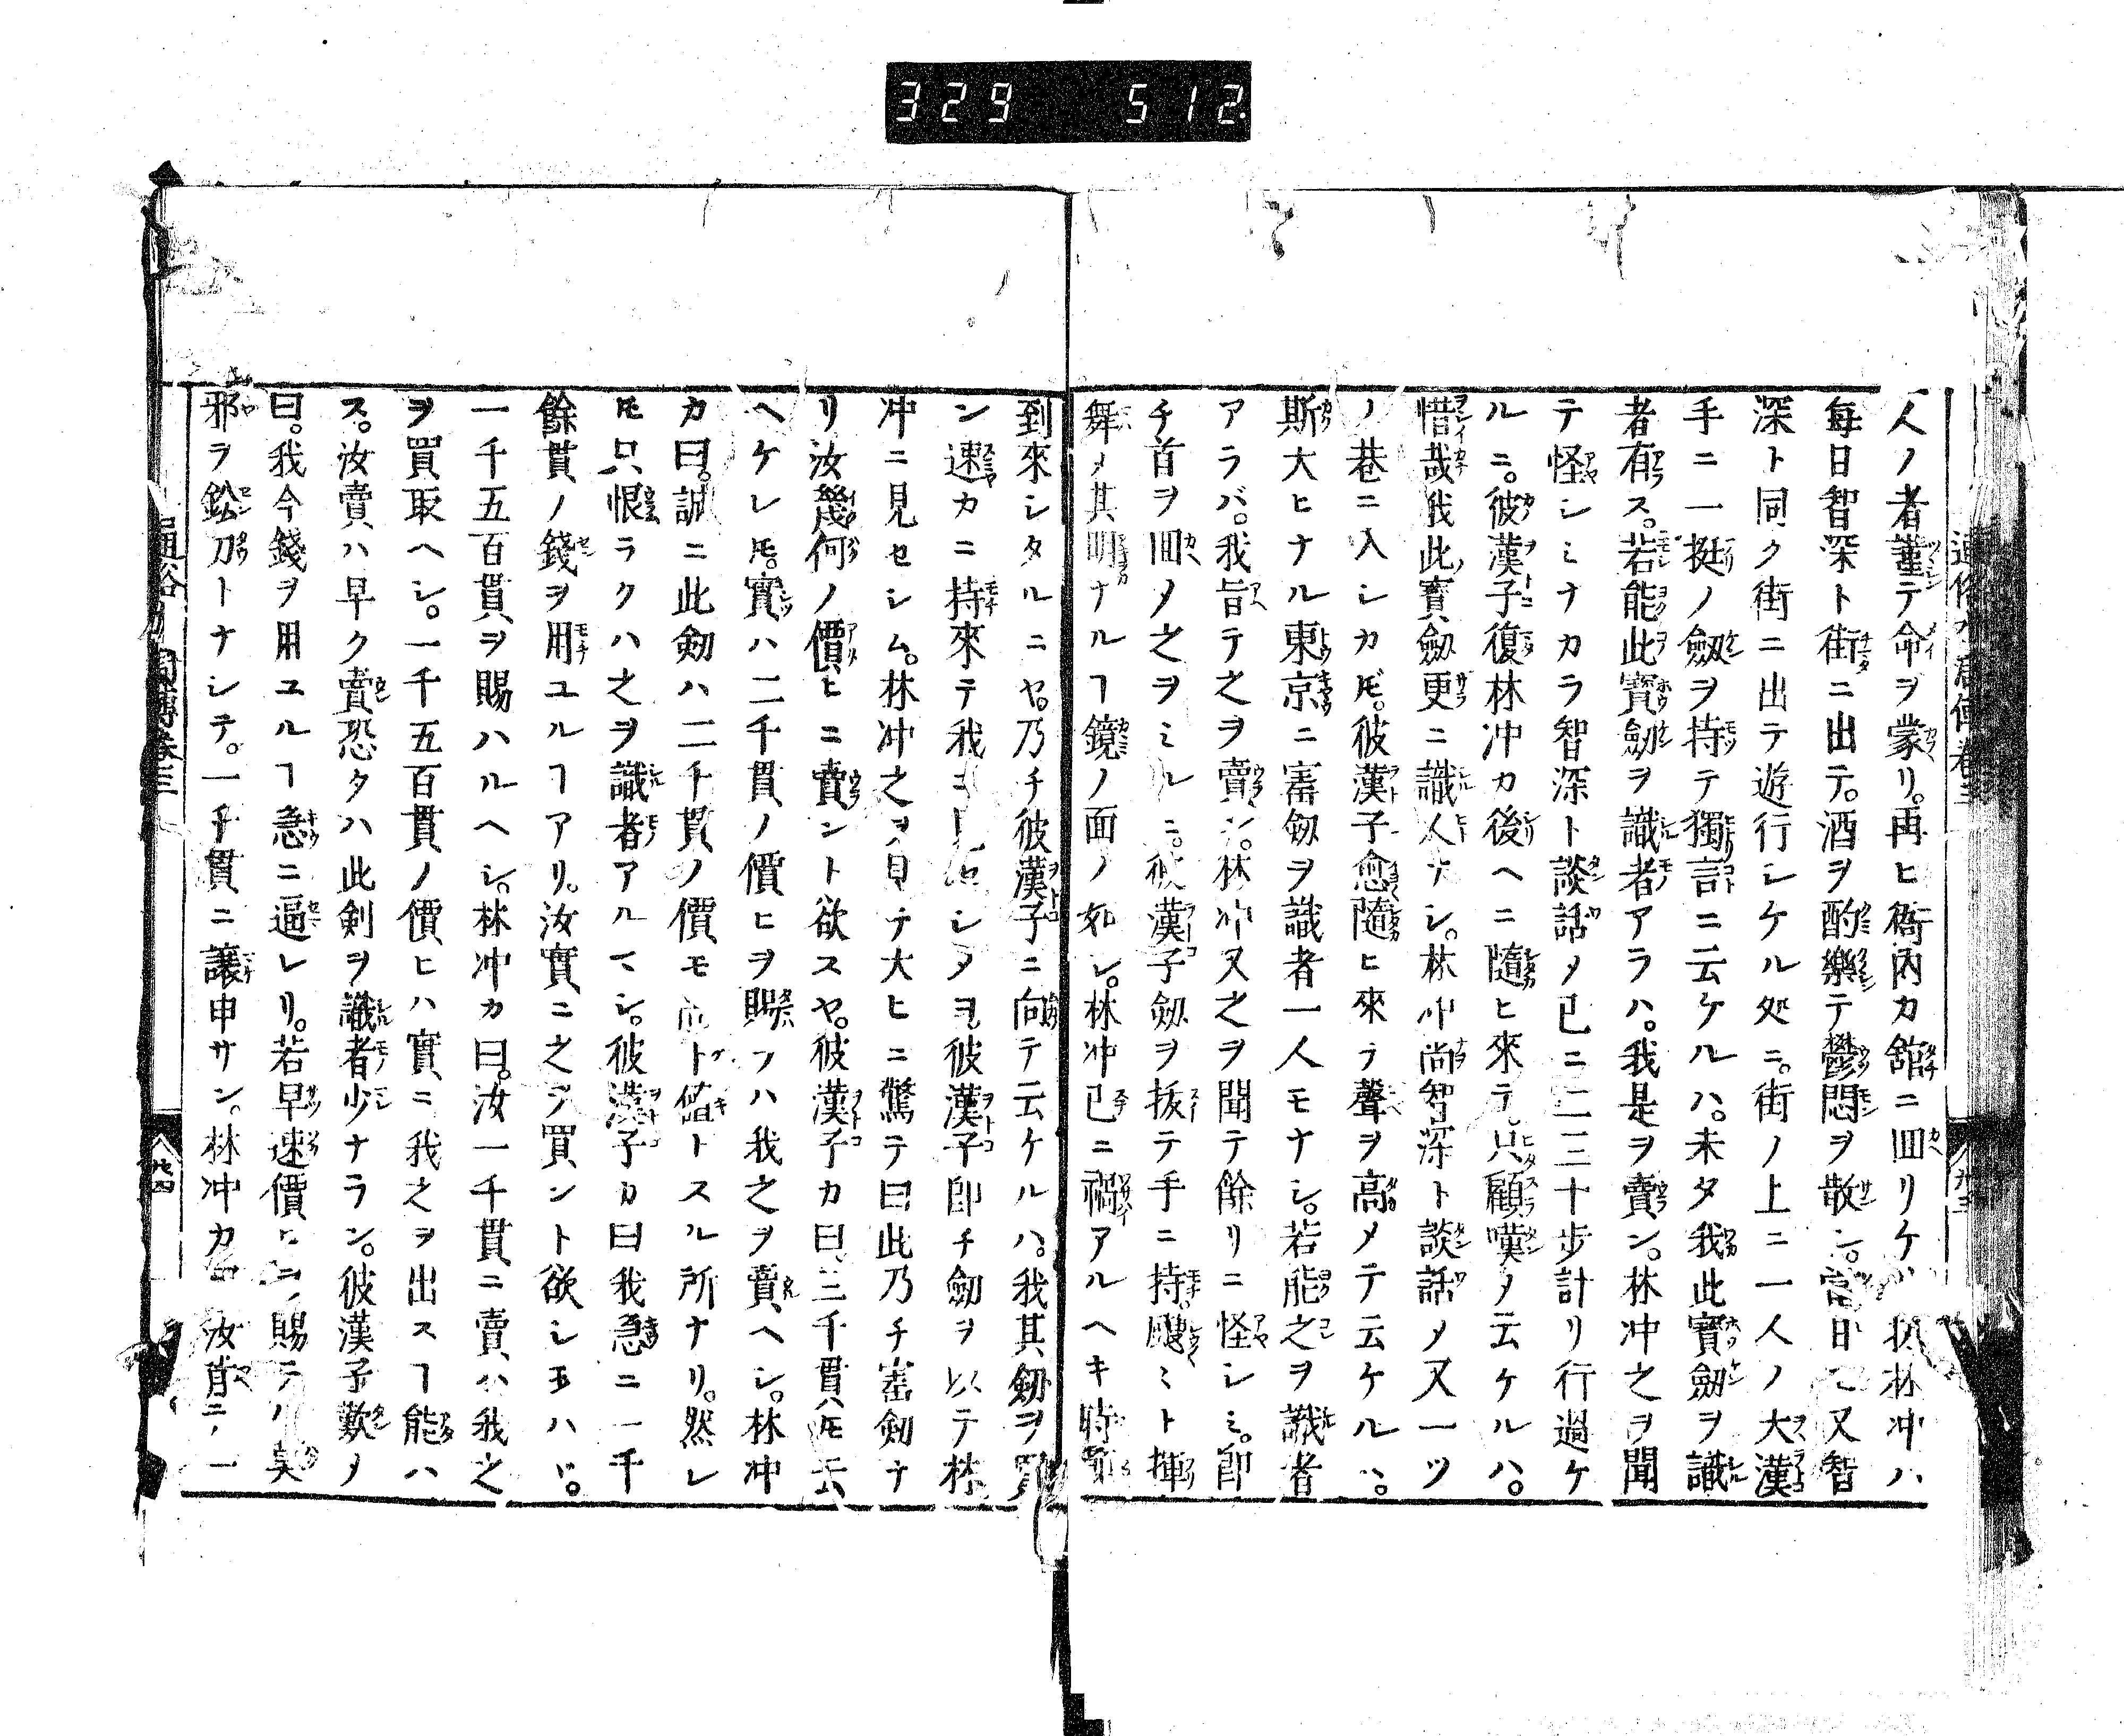 329 512.
人ノ者謹テ命ヲ蒙リ。再ヒ衙内カ舘ニ囬リケ 扨林冲ハ
毎日智深ト街ニ出テ。酒ヲ酌樂テ鬱悶ヲ散シ。當日 又智
深ト同ク街ニ出テ遊行シケル処ニ。街ノ上ニ一人ノ大漢
手ニ一挺ノ劔ヲ持テ獨言ニ云ケルハ。未タ我此寳劔ヲ識
者有ス。若能此寳劔ヲ識者アラハ。我是ヲ賣ン。林冲之ヲ聞
テ怪シミナカラ智深ト談話メ已ニ二三十歩計リ行過ケ
ルニ。彼漢子復林冲カ後ヘニ隨ヒ來テ。只顧嘆メ云ケルハ。
惜哉我此寳劔更ニ識人ナシ。林冲尚智深ト談話メ又一ツ
ノ巷ニ入シカ𪜈。彼漢子愈隨ヒ來ラ聲ヲ高メテ云ケルハ。
斯大ヒナル東京ニ寳劔ヲ識者一人モナシ。若能之ヲ識者
アラバ。我旨テ之ヲ賣ン。林冲又之ヲ聞テ餘リニ怪シミ。即
チ首ヲ囬メ之ヲミルニ。彼漢子劔ヲ抜テ手ニ持。颼ミト揮
舞メ其明ナルヿ鏡ノ面ノ如シ。林冲已ニ禍アルヘキ時節
到來シタルニヤ。乃チ彼漢子ニ向テ云ケルハ。我其劔ヲ買
ン速カニ持來テ我ニ見 シメヨ。彼漢子即チ劔ヲ以テ林
冲ニ見セシム。林冲之ヲ見テ大ヒニ驚テ曰此乃チ寳劔ナ
リ汝幾何ノ價ヒニ賣ント欲スヤ。彼漢子カ曰。三千貫𪜈云
ヘケレ𪜈。實ハ二千貫ノ價ヒヲ賜ハハ我之ヲ賣ヘシ。林冲
カ曰。誠ニ此劔ハ二千貫ノ價モ トスル所ナリ。然レ
𪜈只恨ラクハ之ヲ識者アルマシ。彼漢子カ曰我急ニ一千
餘貫ノ錢ヲ用ユルヿアリ。汝實ニ之ヲ買ント欲シ玉ハヾ。
一千五百貫ヲ賜ハルヘシ。林冲カ曰。汝一千貫ニ賣ハ我之
ヲ買取ヘシ。一千五百貫ノ價ヒハ實ニ我之ヲ出スヿ能ハ
ス。汝賣ハ早ク賣恐タハ此剣ヲ識者少ナラン。彼漢子歎メ
曰。我今錢ヲ用ユルヿ急ニ逼レリ。若早速價ヒヲ賜テハ莫
邪ヲ鈆刀トナシテ。一千貫ニ讓申サン。林冲カ曰 汝肯ニ一
通俗 傳巻三